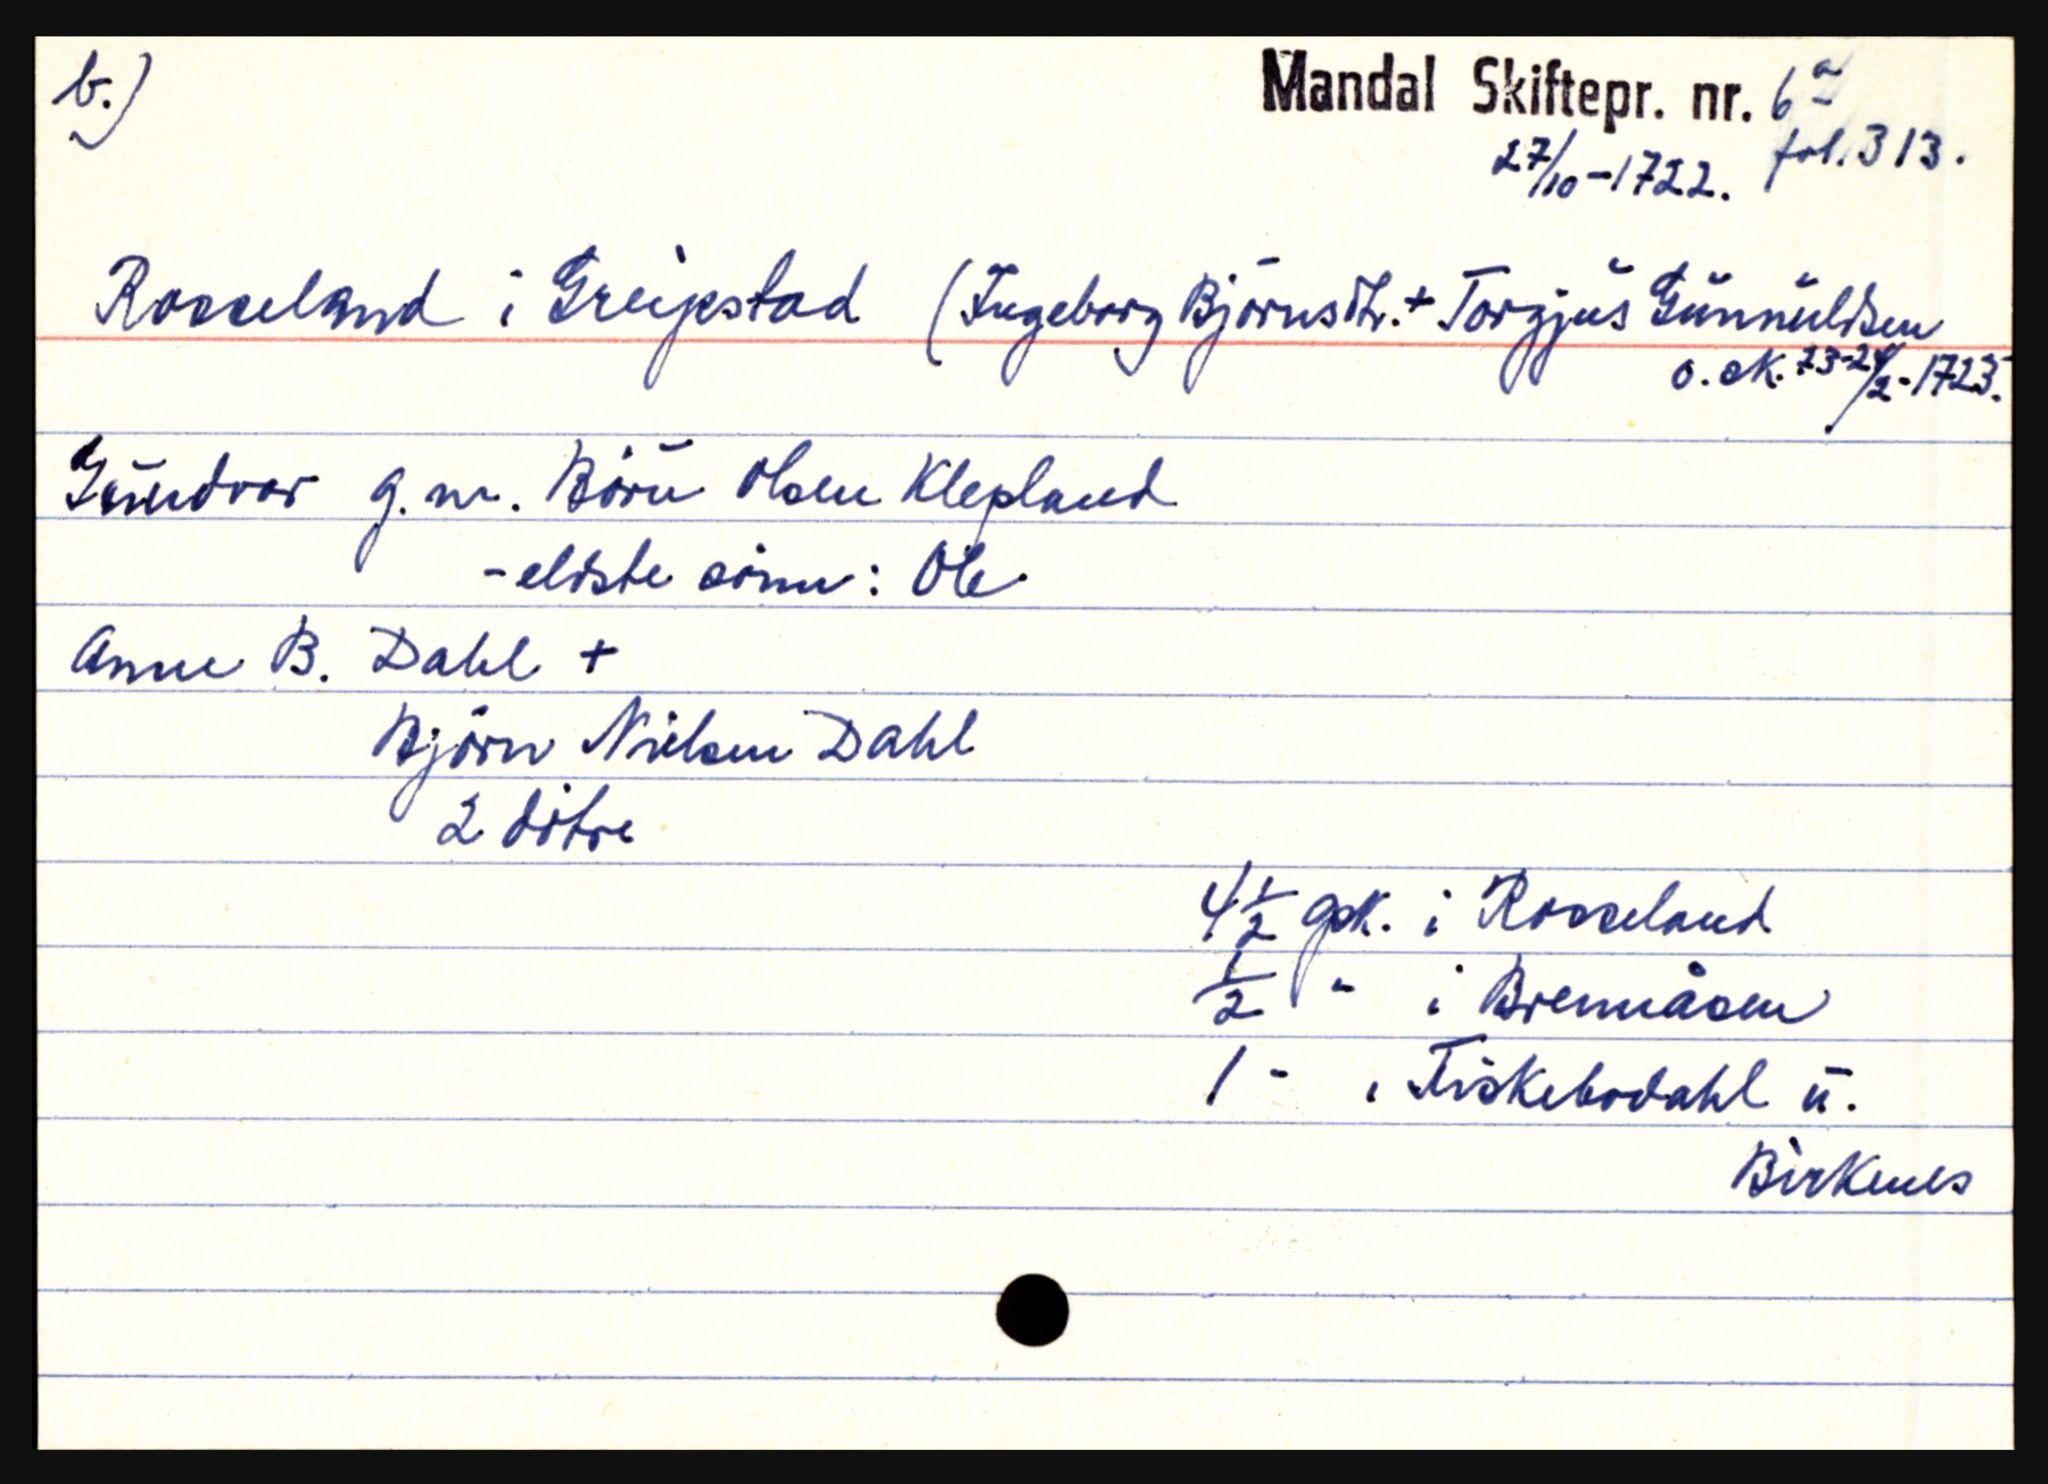 b.)
Mandal Skiftepr. nr. 6a
27/10-1722. fol. 313.
Rosseland i Greipstad (Ingeborg Björnsdtr. + Torgjus Gunnuldsen
o. sk. 23-24/2-1723.
Gundvor g. m. Börn Olsen Klepland
- eldste sönn: Ole
Anne B. Dahl +
Björn Nielsen Dahl
2 dötre
4 1/2 gsk. i Rosseland
1/2 " i Brennåsen
1 - i Fiskebodahl u.
Birkenes